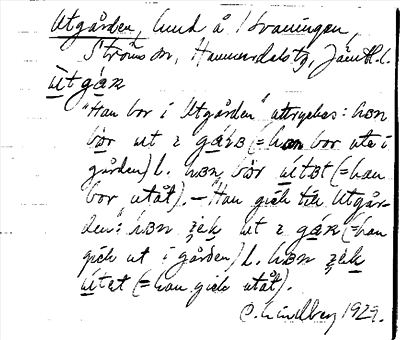 Utgården, lund å Kvarningen,
Ströms sn, Hammerdals tg, Jämtl. l.
ùtgáʀ
"Han bor i Utgården" uttryckes: hɑn
bor ut ɪ gáʀɑ (= han bor ute i
gården) l. hɑn bor útɑt (= han
bor utåt). – "Han gick till Utgår-
den": hɑn ʒek ut ɪ gáʀ (= han
gick ut i gården) l. hɑn ʒek
útɑt (= han gick utåt).
C. Lindberg 1929.